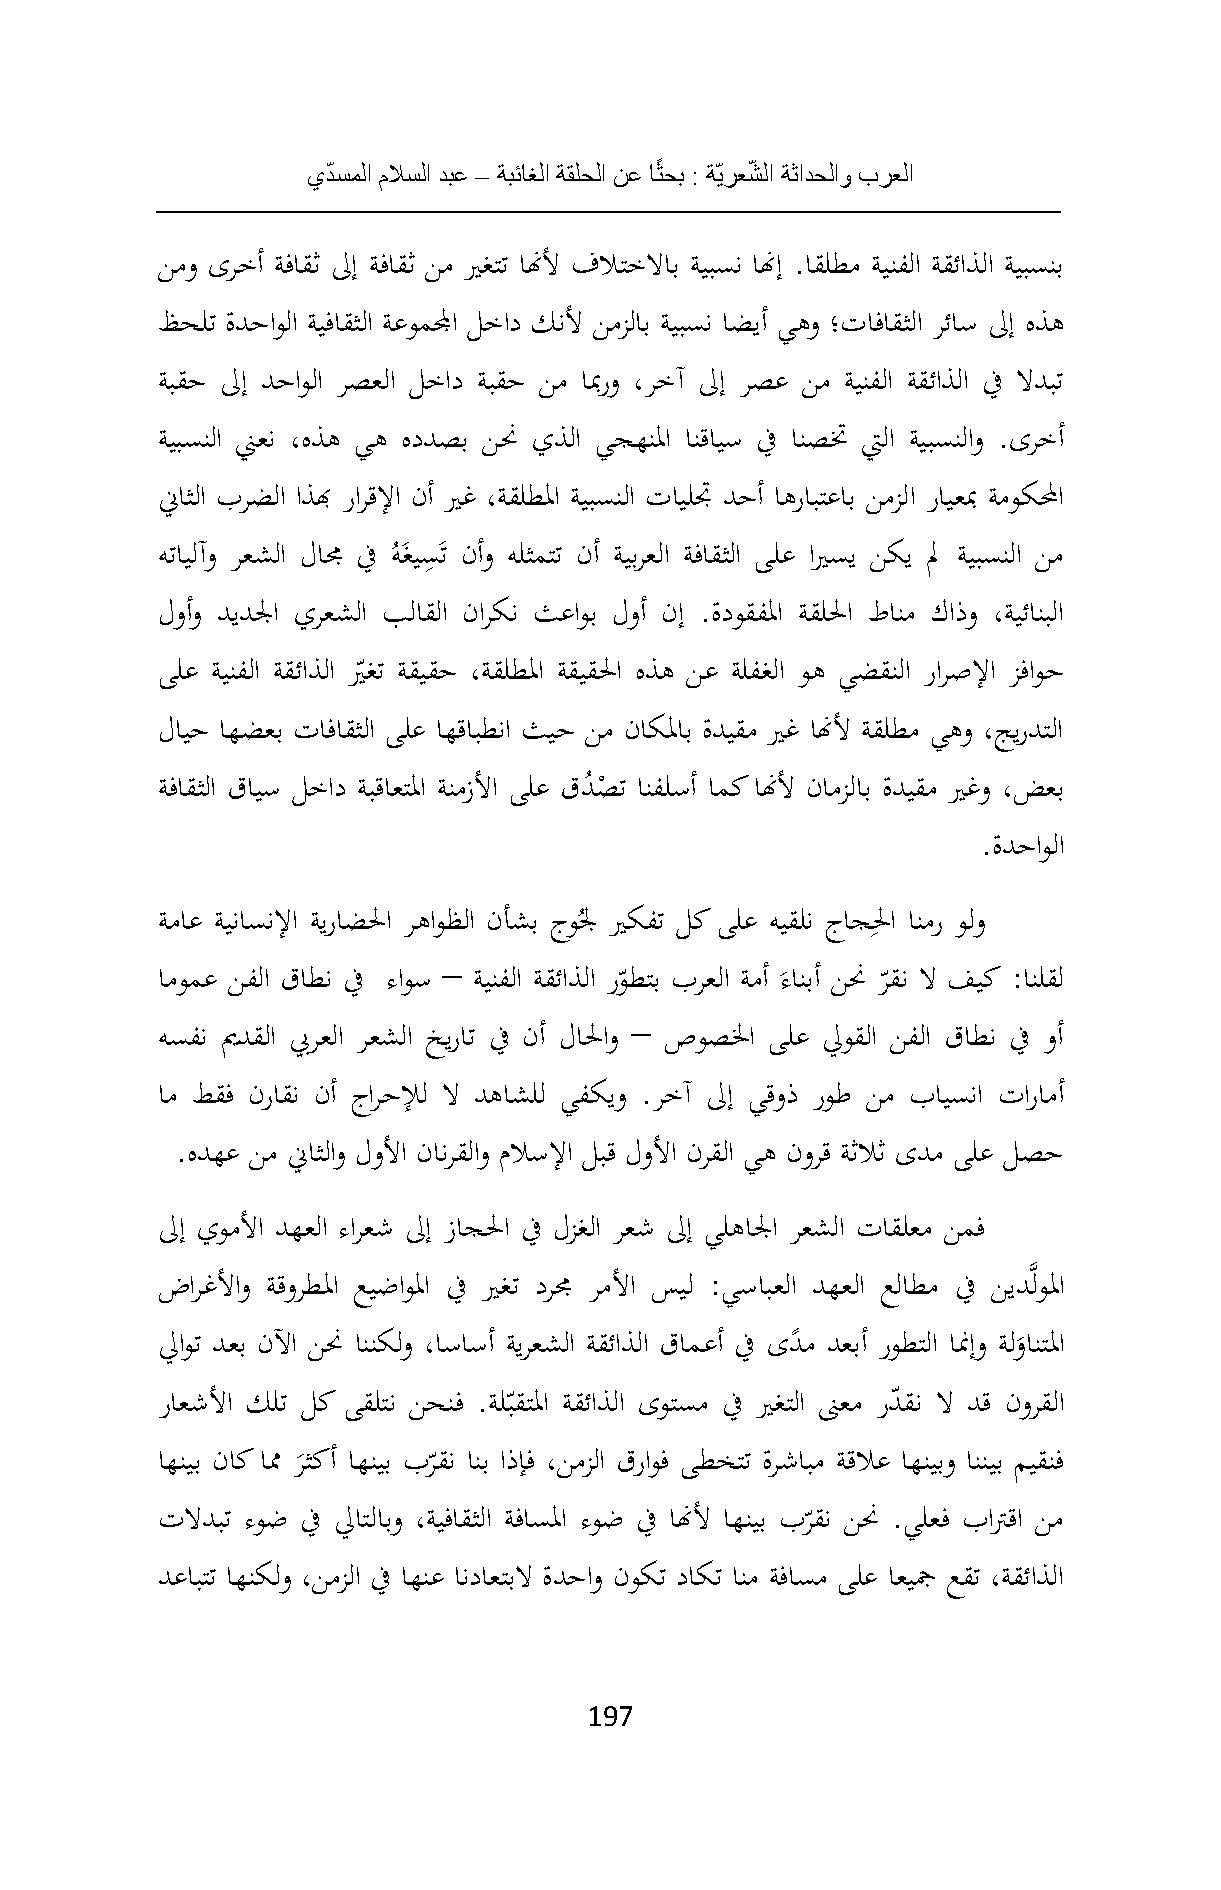 العرب والحداثة الشّعريّة : بحثًا عن الحلقة الغائبة – عبد السلام المسدّي
بنسبية الذائقة الفنية مطلقا. إنها نسبية بالاختلاف لأنها تتغير من ثقافة إلى ثقافة أخرى ومن
هذه إلى سائر الثقافات؛ وهي أيضا نسبية بالزمن لأنك داخل المجموعة الثقافية الواحدة تلحظ
تبدلا في الذائقة الفنية من عصر إلى آخر، وربما من حقبة داخل العصر الواحد إلى حقبة
أخرى. والنسبية التي تخصنا في سياقنا المنهجي الذي نحن بصدده هي هذه، نعني النسبية
المحكومة بمعيار الزمن باعتبارها أحد تجليات النسبية المطلقة، غير أن الإقرار بهذا الضرب الثاني
من النسبية لم يكن يسيرا على الثقافة العربية أن تتمثله وأن تَسِيغَهُ في مجال الشعر وآلياته
البنائية، وذاك مناط الحلقة المفقودة. إن أول بواعث نكران القالب الشعري الجديد وأول
حوافز الإصرار النقضي هو الغفلة عن هذه الحقيقة المطلقة، حقيقة تغيّر الذائقة الفنية على
التدريج، وهي مطلقة لأنها غير مقيدة بالمكان من حيث انطباقها على الثقافات بعضها حيال
بعض، وغير مقيدة بالزمان لأنها كما أسلفنا تصْدُق على الأزمنة المتعاقبة داخل سياق الثقافة
الواحدة.
ولو رمنا الحِجاج نلقيه على كل تفكير لجُوج بشأن الظواهر الحضارية الإنسانية عامة
لقلنا: كيف لا نقرّ نحن أبناءَ أمة العرب بتطوّر الذائقة الفنية – سواء في نطاق الفن عموما
أو في نطاق الفن القولي على الخصوص – والحال أن في تاريخ الشعر العربي القديم نفسه
أمارات انسياب من طور ذوقي إلى آخر. ويكفي للشاهد لا للإحراج أن نقارن فقط ما
حصل على مدى ثلاث قرون هي القرن الأول قبل الإسلام والقرنان الأول والثاني من عهده.
فمن معلقات الشعر الجاهلي إلى شعر الغزل في الحجاز إلى شعراء العهد الأموي إلى
المولَّدين في مطالع العهد العباسي: ليس الأمر مجرد تغير في المواضيع المطروقة والأغراض
المتناوَلة وإنما التطور أبعد مدىً في أعماق الذائقة الشعرية أساسا، ولكننا نحن الآن بعد توالي
القرون قد لا نقدّر معنى التغير في مستوى الذائقة المتقبّلة. فنحن نتلقى كل تلك الأشعار
فنقيم بيننا وبينها علاقة مباشرة تتخطى فوارق الزمن، فإذا بنا نقرّب بينها أكثرَ مما كان بينها
من اقتراب فعلي. نحن نقرّب بينها لأنها في ضوء المسافة الثقافية، وبالتالي في ضوء تبدلات
الذائقة، تقع جميعا على مسافة منا تكاد تكون واحدة لابتعادنا عنها في الزمن، ولكنها تتباعد
197